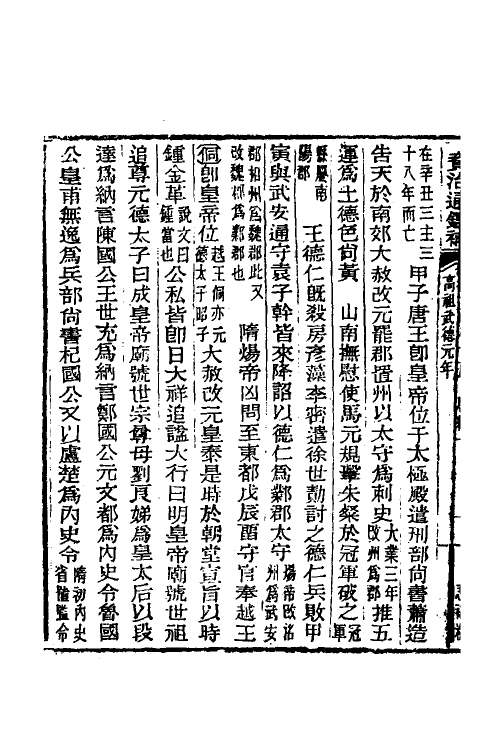 資治通鑑補
高祖武德元年
在辛丑三主三十八年而亡 甲子唐王卽皇帝位于太極殿遣刑部尙書蕭造
告天於南郊大赦改元罷郡置州以太守爲刺史大業三年改州爲郡推五
運爲土德色尙黃 山南撫慰使馬元規擊朱粲於冠軍破之冠軍
縣屬南陽郡 王德仁旣殺房彥藻李密遣徐世勣討之德仁兵敗甲
寅與武安通守袁子幹皆來降詔以德仁爲鄴郡太守煬帝改洺州爲武安
郡相州爲魏郡此又改魏郡爲鄴郡也 隋煬帝凶問至東都戊辰留守官奉越王
侗卽皇帝位越王侗亦元德太子昭子大赦改元皇泰是時於朝堂宣旨以時
鍾金革說文曰鍾當也公私皆卽日大祥追諡大行曰明皇帝廟號世祖
追尊元德太子曰成皇帝廟號世宗尊母劉良娣爲皇太后以段
達爲納言陳國公王世充爲納言鄭國公元文都爲內史令魯國
公皇甫無逸爲兵部尙書杞國公又以盧楚爲內史令隋初內史省置監令